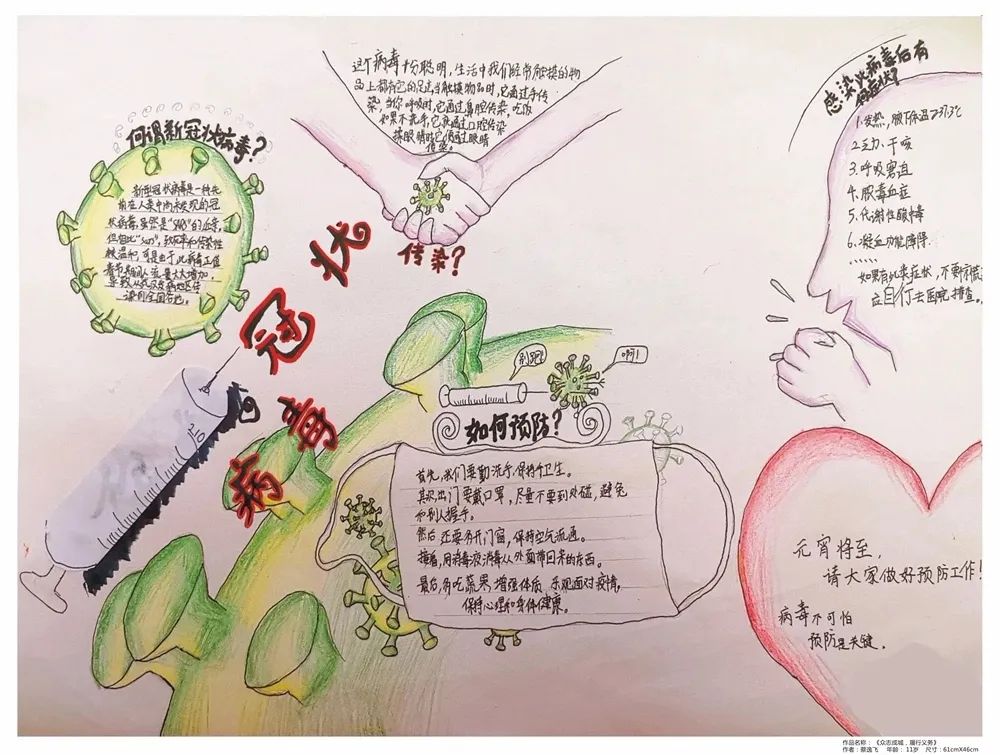 何谓新冠状病毒?
新型冠状病毒是一种先
前在人类中尚未发现的冠
状病毒,虽然是"SARS"的近亲,
但相比"SARS",致死率和传染性
都温和,可是由于此病毒正值
春节期间人流量大大增加,
导致从武汉发病地区传
染到全国各地。
这个病毒十分聪明,生活中我们经常触摸的物
品上都有它的足迹,当触摸物品时,它通过手传
染;当你呼吸时,它通过鼻腔传染,吃饭
如果不洗手,它就通过口腔传染
揉眼睛时它便通过眼睛
传染。
传染?
感染此病毒后有
何症状?
1.发热,腋下体温≥37.3℃
2.乏力、干咳
3.呼吸窘迫
4.脓毒血症
5.代谢性酸中毒
6.凝血功能障碍.
......
如果有此类症状,不要惊慌
应自行去医院排查。
冠状
病毒
别跑!
啊!
如何预防?
首先,我们要勤洗手,保持手卫生。
其次,出门要戴口罩,尽量不要到处碰,避免
和别人握手。
然后,还要多开门窗,保持空气流通。
接着,用消毒液消毒从外面带回来的东西。
最后,多吃蔬果,增强体质,乐观面对疫情,
保持心理和身体健康。
元宵将至,
请大家做好预防工作!
病毒不可怕
预防是关键。
作品名称:《众志成城,履行义务》
作者:蔡逸飞 年龄:11岁 尺寸:61cmX46cm